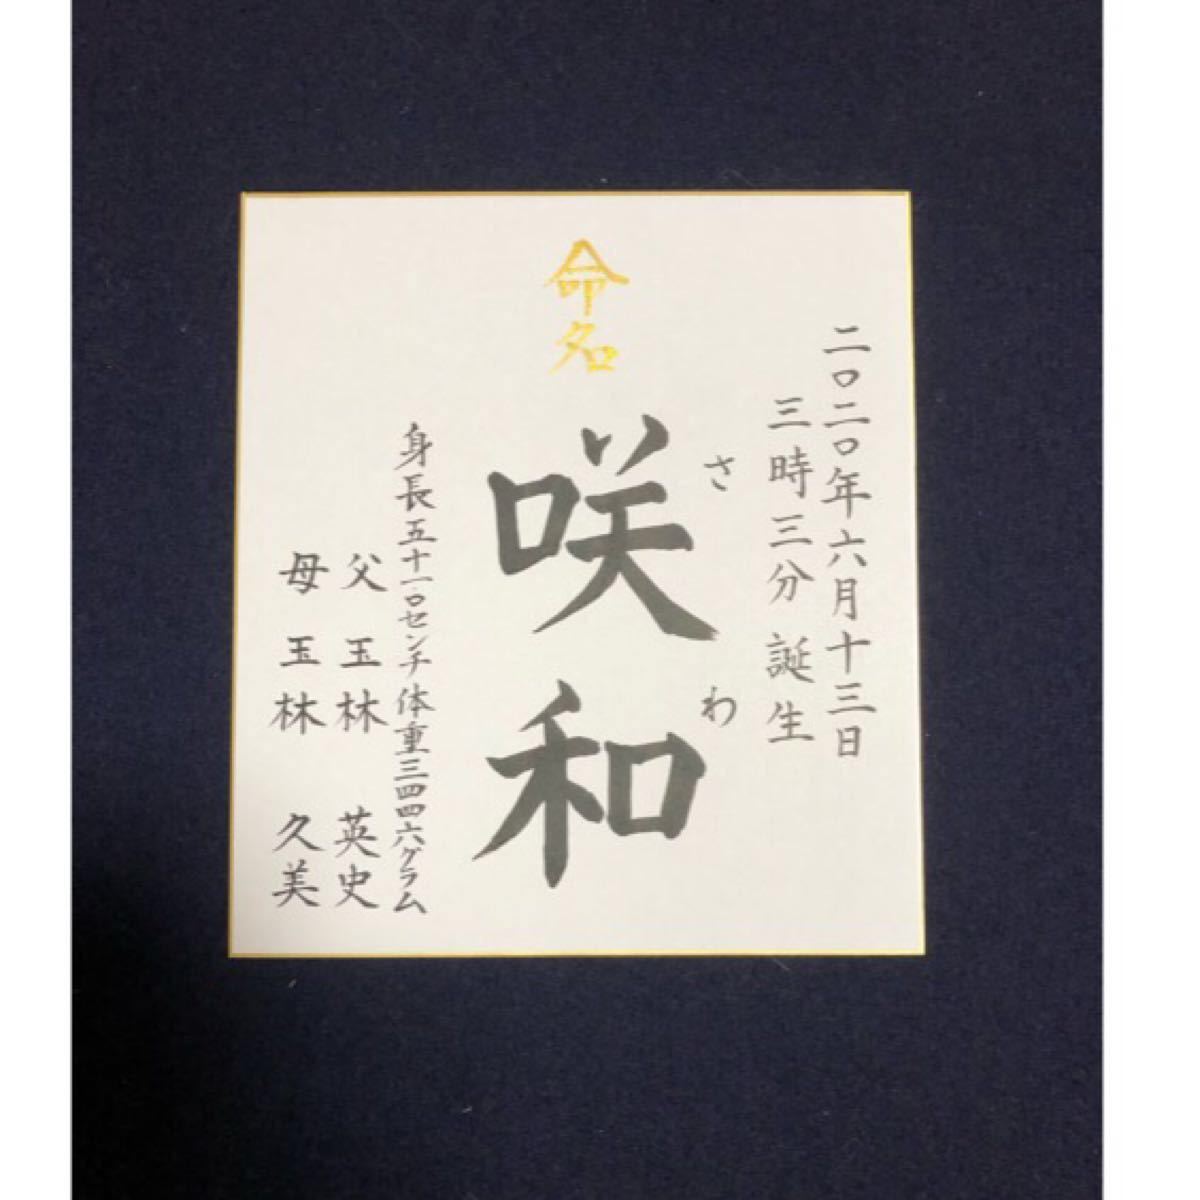 二〇二〇年六月十三日
三時三分 誕生
命名
さわ
咲和
身長五十一.〇センチ 体重三四四六グラム
父 玉林 英史
母 玉林 久美